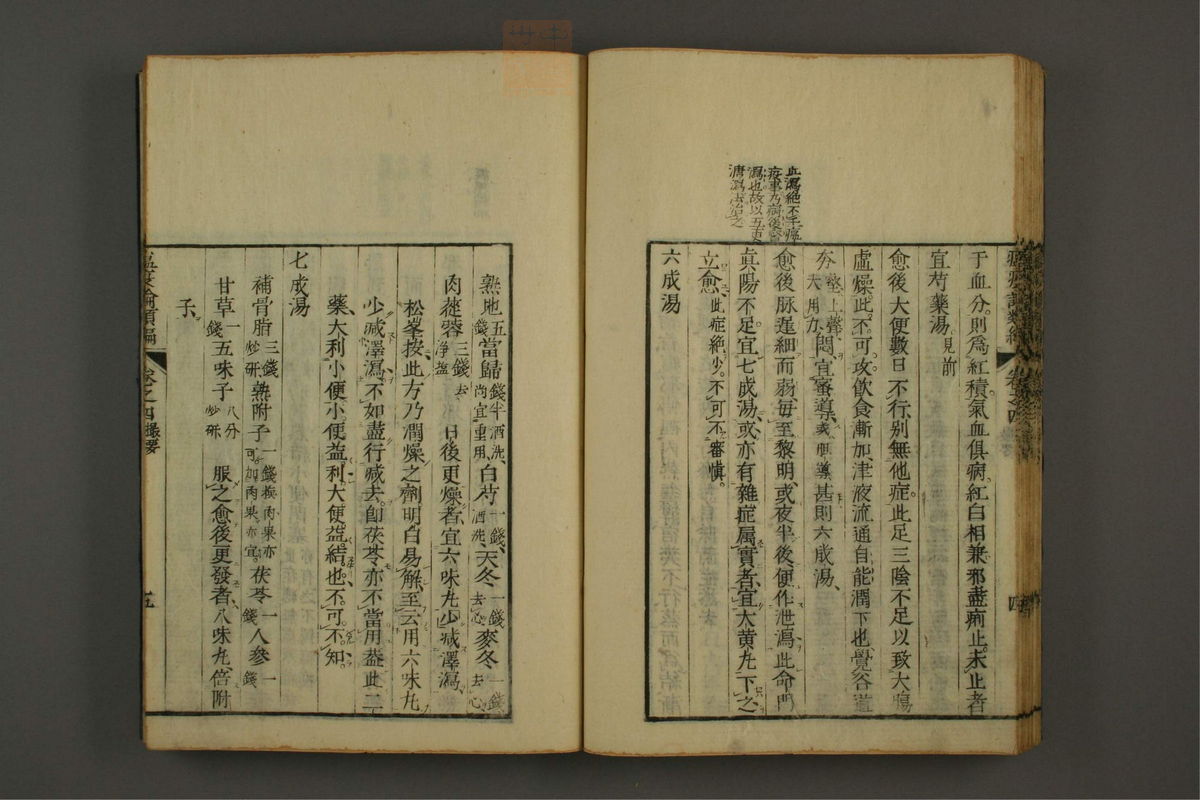 血瀉絶不
瀉也故以五更
溏瀉
于血分則爲紅積氣血俱病紅白相兼邪盡痢止未止者
宜芍藥湯見前
愈後大便數日不行別無他症此足三陰不足以致大腸
虛燥此不可攻飲食漸加津液流通自能潤下也覺谷道
夯大用力悶宜蜜導或 導甚則六成湯
愈後脉遲細而弱每至黎明或夜半後便作泄瀉此命門
眞陽不足宜七成湯或亦有雜症属實者宜大黄丸下之
立愈此症絶少不可不審愼
六成湯
熟地五錢當歸錢半酒洗尚宜重用白芍一錢酒洗天冬一錢去心麥冬一錢去心
肉蓯蓉三錢去淨鹽 日後更燥者宜六味丸少减澤瀉
松峯按此方乃潤燥之劑明白易解至云用六味丸
少减澤瀉不如盡行减去即茯苓亦不當用葢此二
藥大利小便小便益利大便益結也不可不知
七成湯
補骨脂三錢炒研熟附子一錢 肉果亦可加肉果亦宜茯苓一錢人參一錢
甘草一錢五味子八分炒研 服之愈後更發者八味丸倍附
子
卷之四撮要
四
五